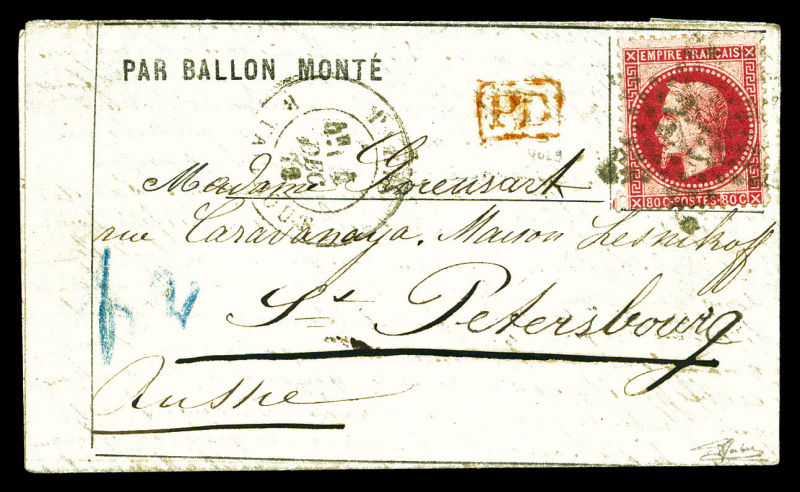 PAR BALLON MONTÉ
PD
EMPIRE FRANÇAIS
80C POSTES 80C
Madame Goreusart
rue Caravanaya, Maison Lesnikoff
St Petersbourg
Russie